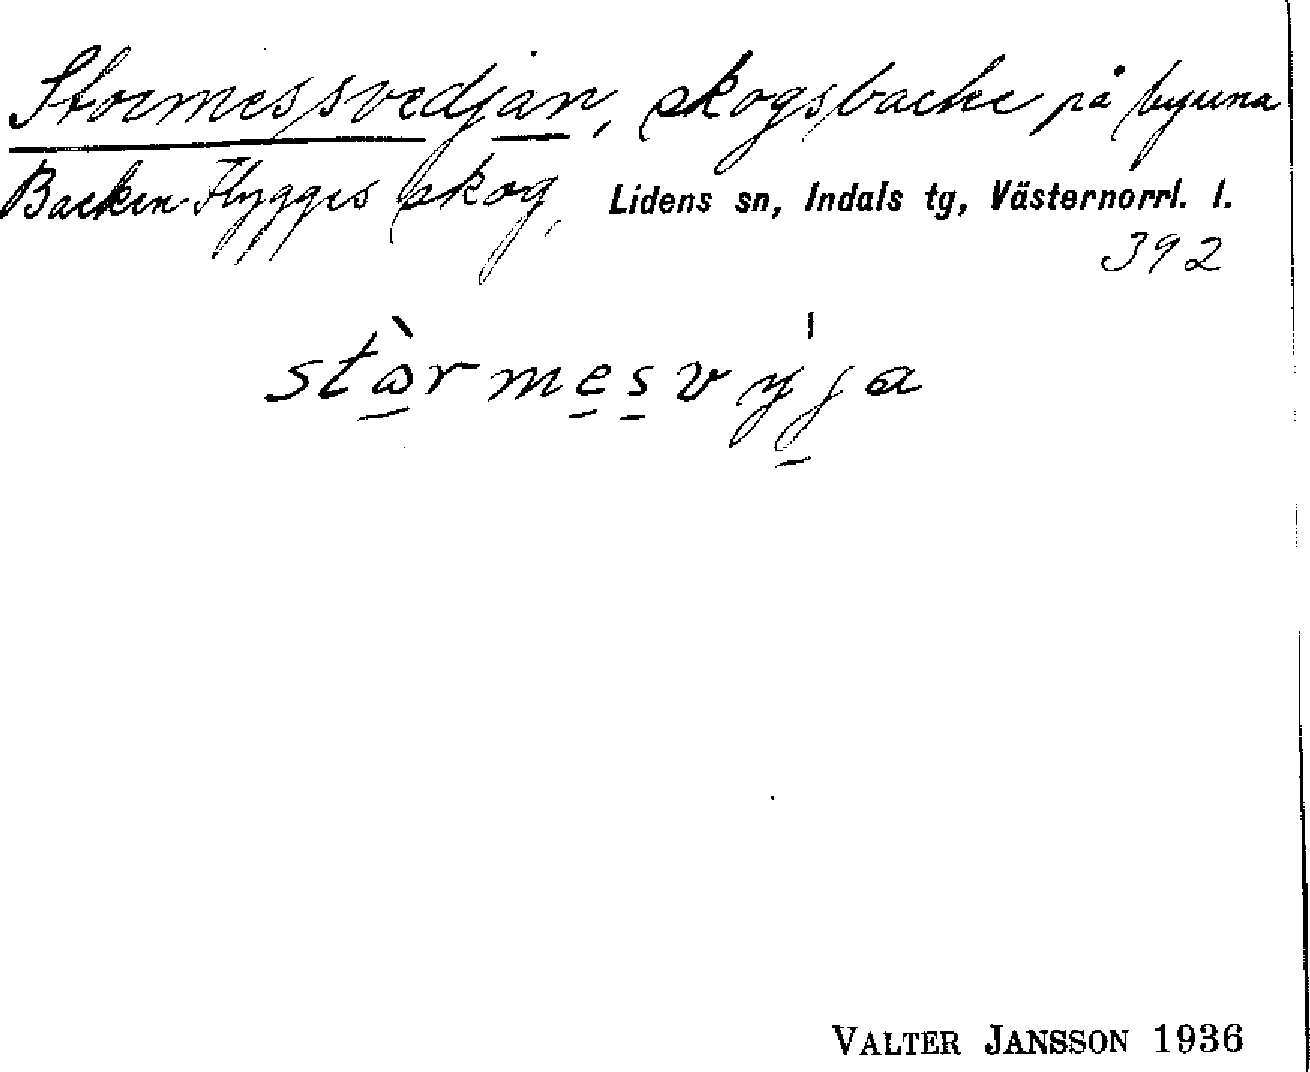 Stormessvedjan, skogsbacke på byarna
Backen-Flygges skog, Lidens sn, Indals tg, Västernorrl. l.
392
stɷ̀rmesvyja
VALTER JANSSON 1936